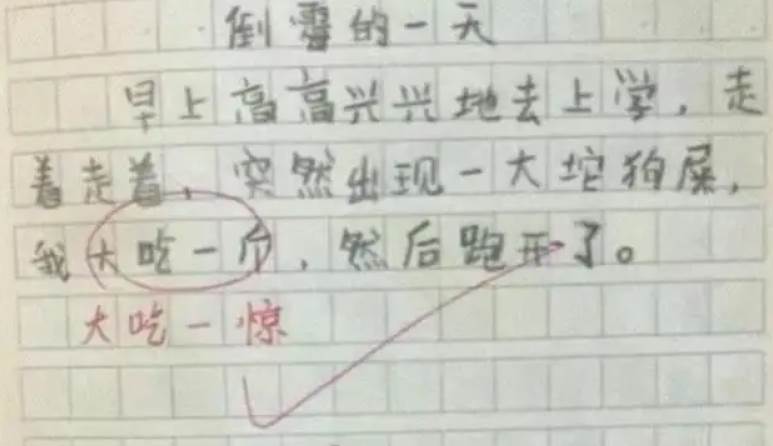 倒霉的一天
早上高高兴兴地去上学，走
着走着，突然出现一大坨狗屎，
我大吃一斤，然后跑开了。
大吃一惊